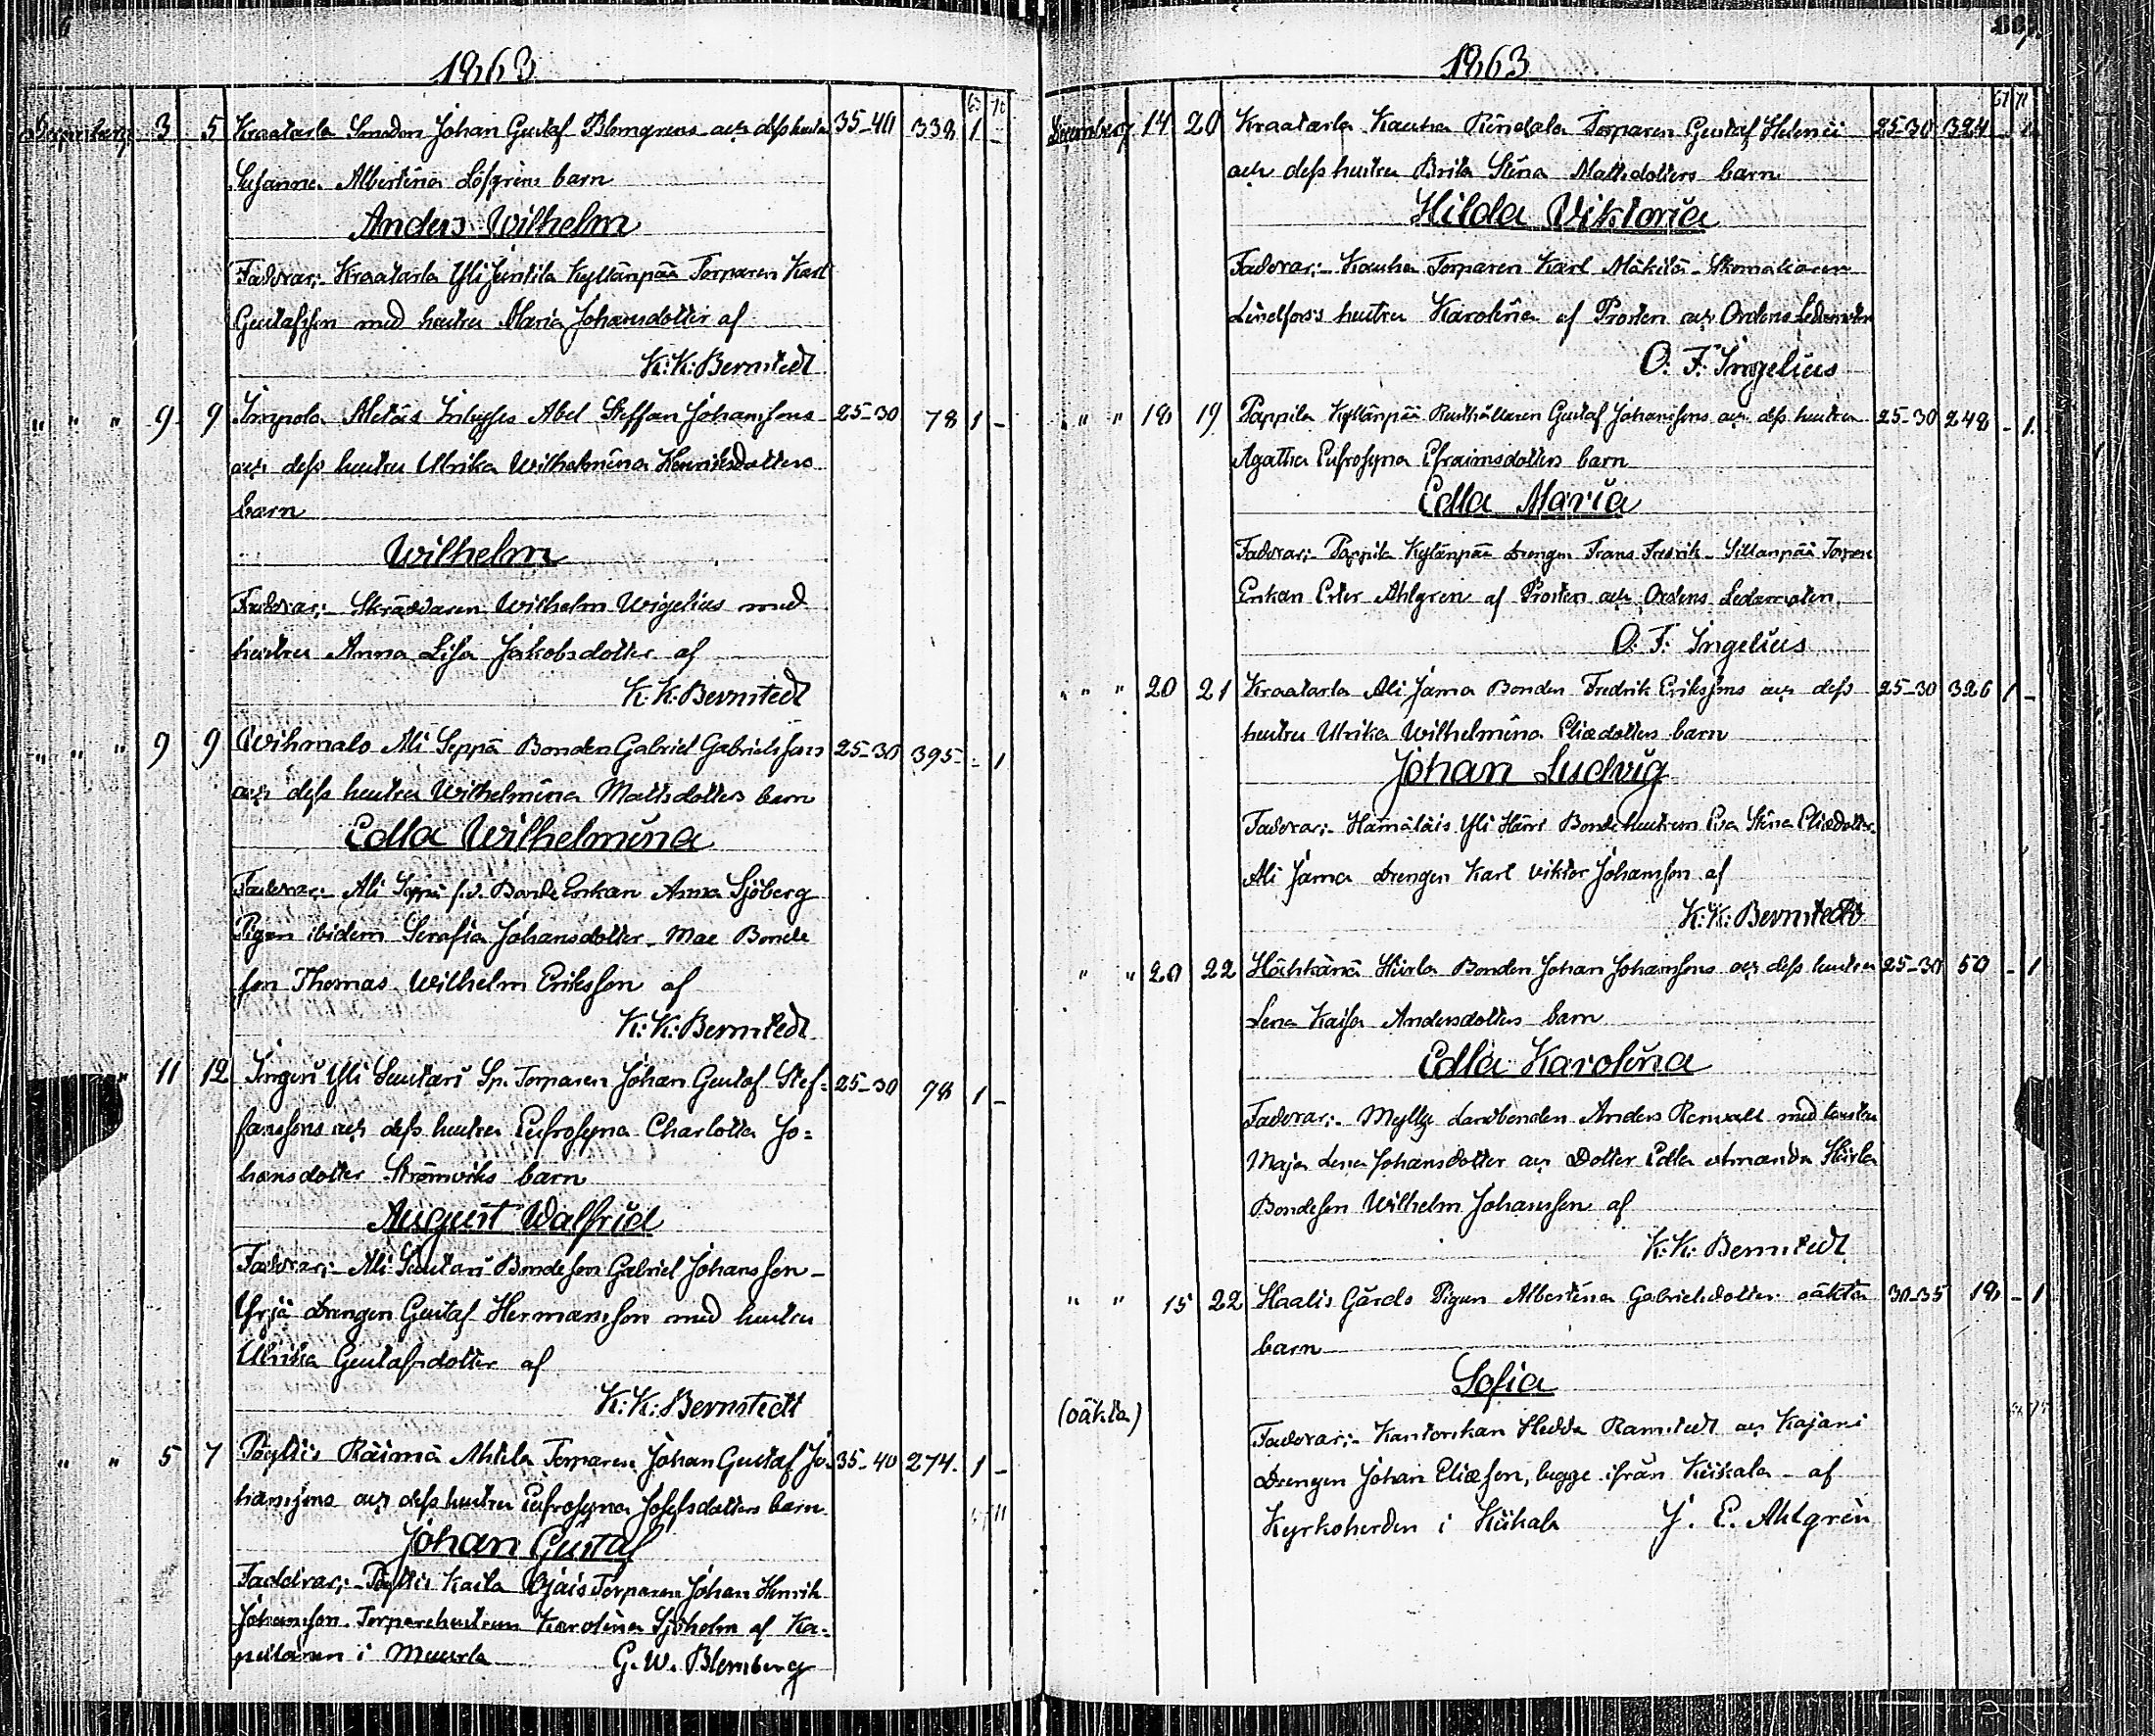 1863
63 76
December 3 5 Kraatarla Smeden Johan Gustaf Blomgrens och dess hustru 35-40 338 1 -
Susanna Albertina Löfgrens barn
Anders Wilhelm
Faddrar:- Kraatarla Yli Juntila Kyllänpää Torparen Karl
Gustafsson med hustru Maria Johansdotter af
K: K: Bernstedt
" " " 9 9 Impola Aletais Inhyses Abel Steffan Johanssons 25-30 78 1 -
och dess hustru Ulrika Wilhelmina Henriksdotters
barn
Wilhelm
Faddrar:- Skräddaren Wilhelm Wigelius med
hustru Anna Lisa Jakobsdotter af
K. K. Bernstedt
" " " 9 9 Wihmalo Ali Seppä Bonden Gabriel Gabrielssons 25-30 395 - 1
och dess hustru Wilhelmina Mattsdotters barn
Edla Wilhelmina
Faddrar:- Ali Seppä f.d. Bonde Enkan Anna Sjöberg
Pigan ibidem Serafia Johansdotter - Mae Bonde
son Thomas Wilhelm Eriksson af
K: K: Bernstedt
" 11 12 Ingeri Yli Suutari Sp. Torparen Johan Gustaf Stef- 25-30 98 1 -
fanssons och dess hustru Eufrosyna Charlotta Jo-
hansdotter Strömviks barn
August Walfrid
Faddrar:- Ali Suutari Bondeson Gabriel Johansson -
Yrjä Drengen Gustaf Hermansson med hustru
Ulrika Gustafsdotter af
K: K: Bernstedt
" " 5 7 Pöytiö Räimä Ahtela Torparen Johan Gustaf Jo- 35-40 274. 1 -
hanssons och dess hustru Eufrosyna Josefsdotters barn
Johan Gustaf
Faddrar:- Kaila Torparen Johan Henrik
Johansson. Torparehustrun Karolina Sjöholm af Ka-
pellanen i Muurla G. W. Blomberg
1863
67 71
December 14 20 Kraatarla Kauha Rindala Torparen Gustaf Helenii 25-30 324 - 1.
och dess hustru Brita Stina Mattsdotters barn
Hilda Viktoria
Faddrar:- Kauha Torparen Karl Mäkilä - Skomakaren
Lindfors's hustru Karolina af Prosten och Ordens Ledamoten
O. F. Ingelius
" " 18 19 Pappila Kyllänpää Rusthållaren Gustaf Johanssons och dess hustru 25-30 248 - 1.
Agatha Eufrosyna Efraimsdotters barn
Edla Maria
Faddrar:- Pappila Kyllänpää Drengen Frans Fredrik - Sillanpää
Enkan Ester Ahlgren af Prosten och Ordens Ledamoten
O. F. Ingelius
" " 20 21 Kraatarla Ali Jama Bonden Fredrik Erikssons och dess 25-30 326 1 -
hustru Ulrika Wilhelmina Eliædotters barn
Johan Ludvig
Faddrar:- Hämäläis Yli Häni Bondehustrun Eva Stina Eliædotter
Ali Jama Drengen Karl Viktor Johansson af
K: K: Bernstedt
" " 20 22 Hähkänä Hiirla Bonden Johan Johanssons och dess hustru 25-30 50 - 1
Lena Kaisa Andersdotters barn
Edla Karolina
Faddrar:- Myllye Landbonden Anders Renvall med hustru
Maja Lena Johansdotter och Dotter Edla Amanda Hiirla
Bondeson Wilhelm Johansson af
K: K: Bernstedt
" " 15 22 Haalis Gårds Pigan Albertina Gabrielsdotters oäkta 30-35 18 - 1
barn
Sofia
(oäkta)
Faddrar:- Kantorskan Hedda Ramstedt och Kajani
Drengen Johan Eliæson, begge ifrån Kiikala - af
Kyrkoherden i Kiikala J. E. Ahlgrén